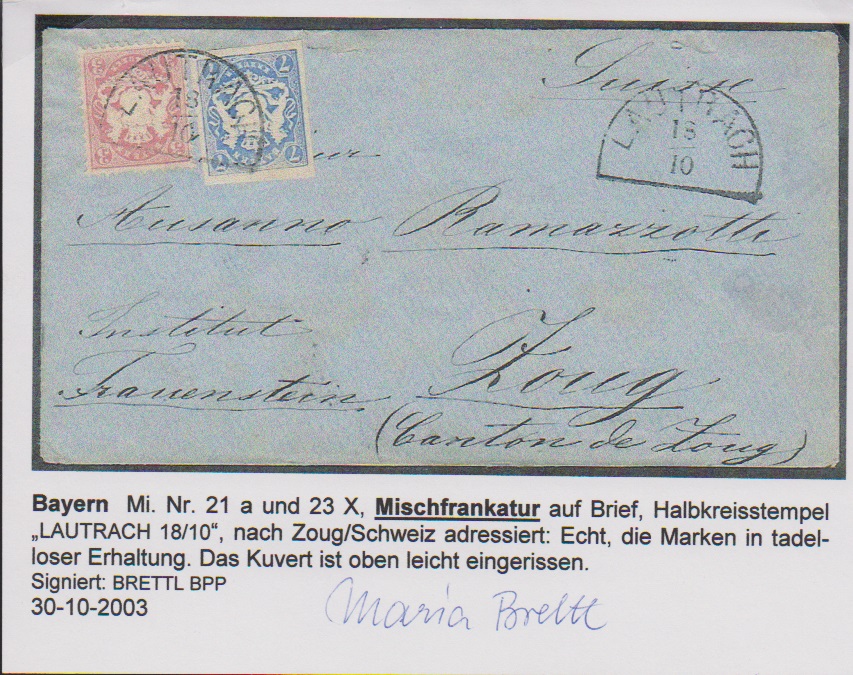 LAUTRACH
18
10
7
7
7
Suisse
LAUTRACH
18
10
Ausanno Ramazzotti
Institut
Frauenstein Zoug
(Canton de Zoug)
Bayern Mi. Nr. 21 a und 23 X, Mischfrankatur auf Brief, Halbkreisstempel
„LAUTRACH 18/10“, nach Zoug/Schweiz adressiert: Echt, die Marken in tadel-
loser Erhaltung. Das Kuvert ist oben leicht eingerissen.
Signiert: BRETTL BPP
30-10-2003 Maria Brettl